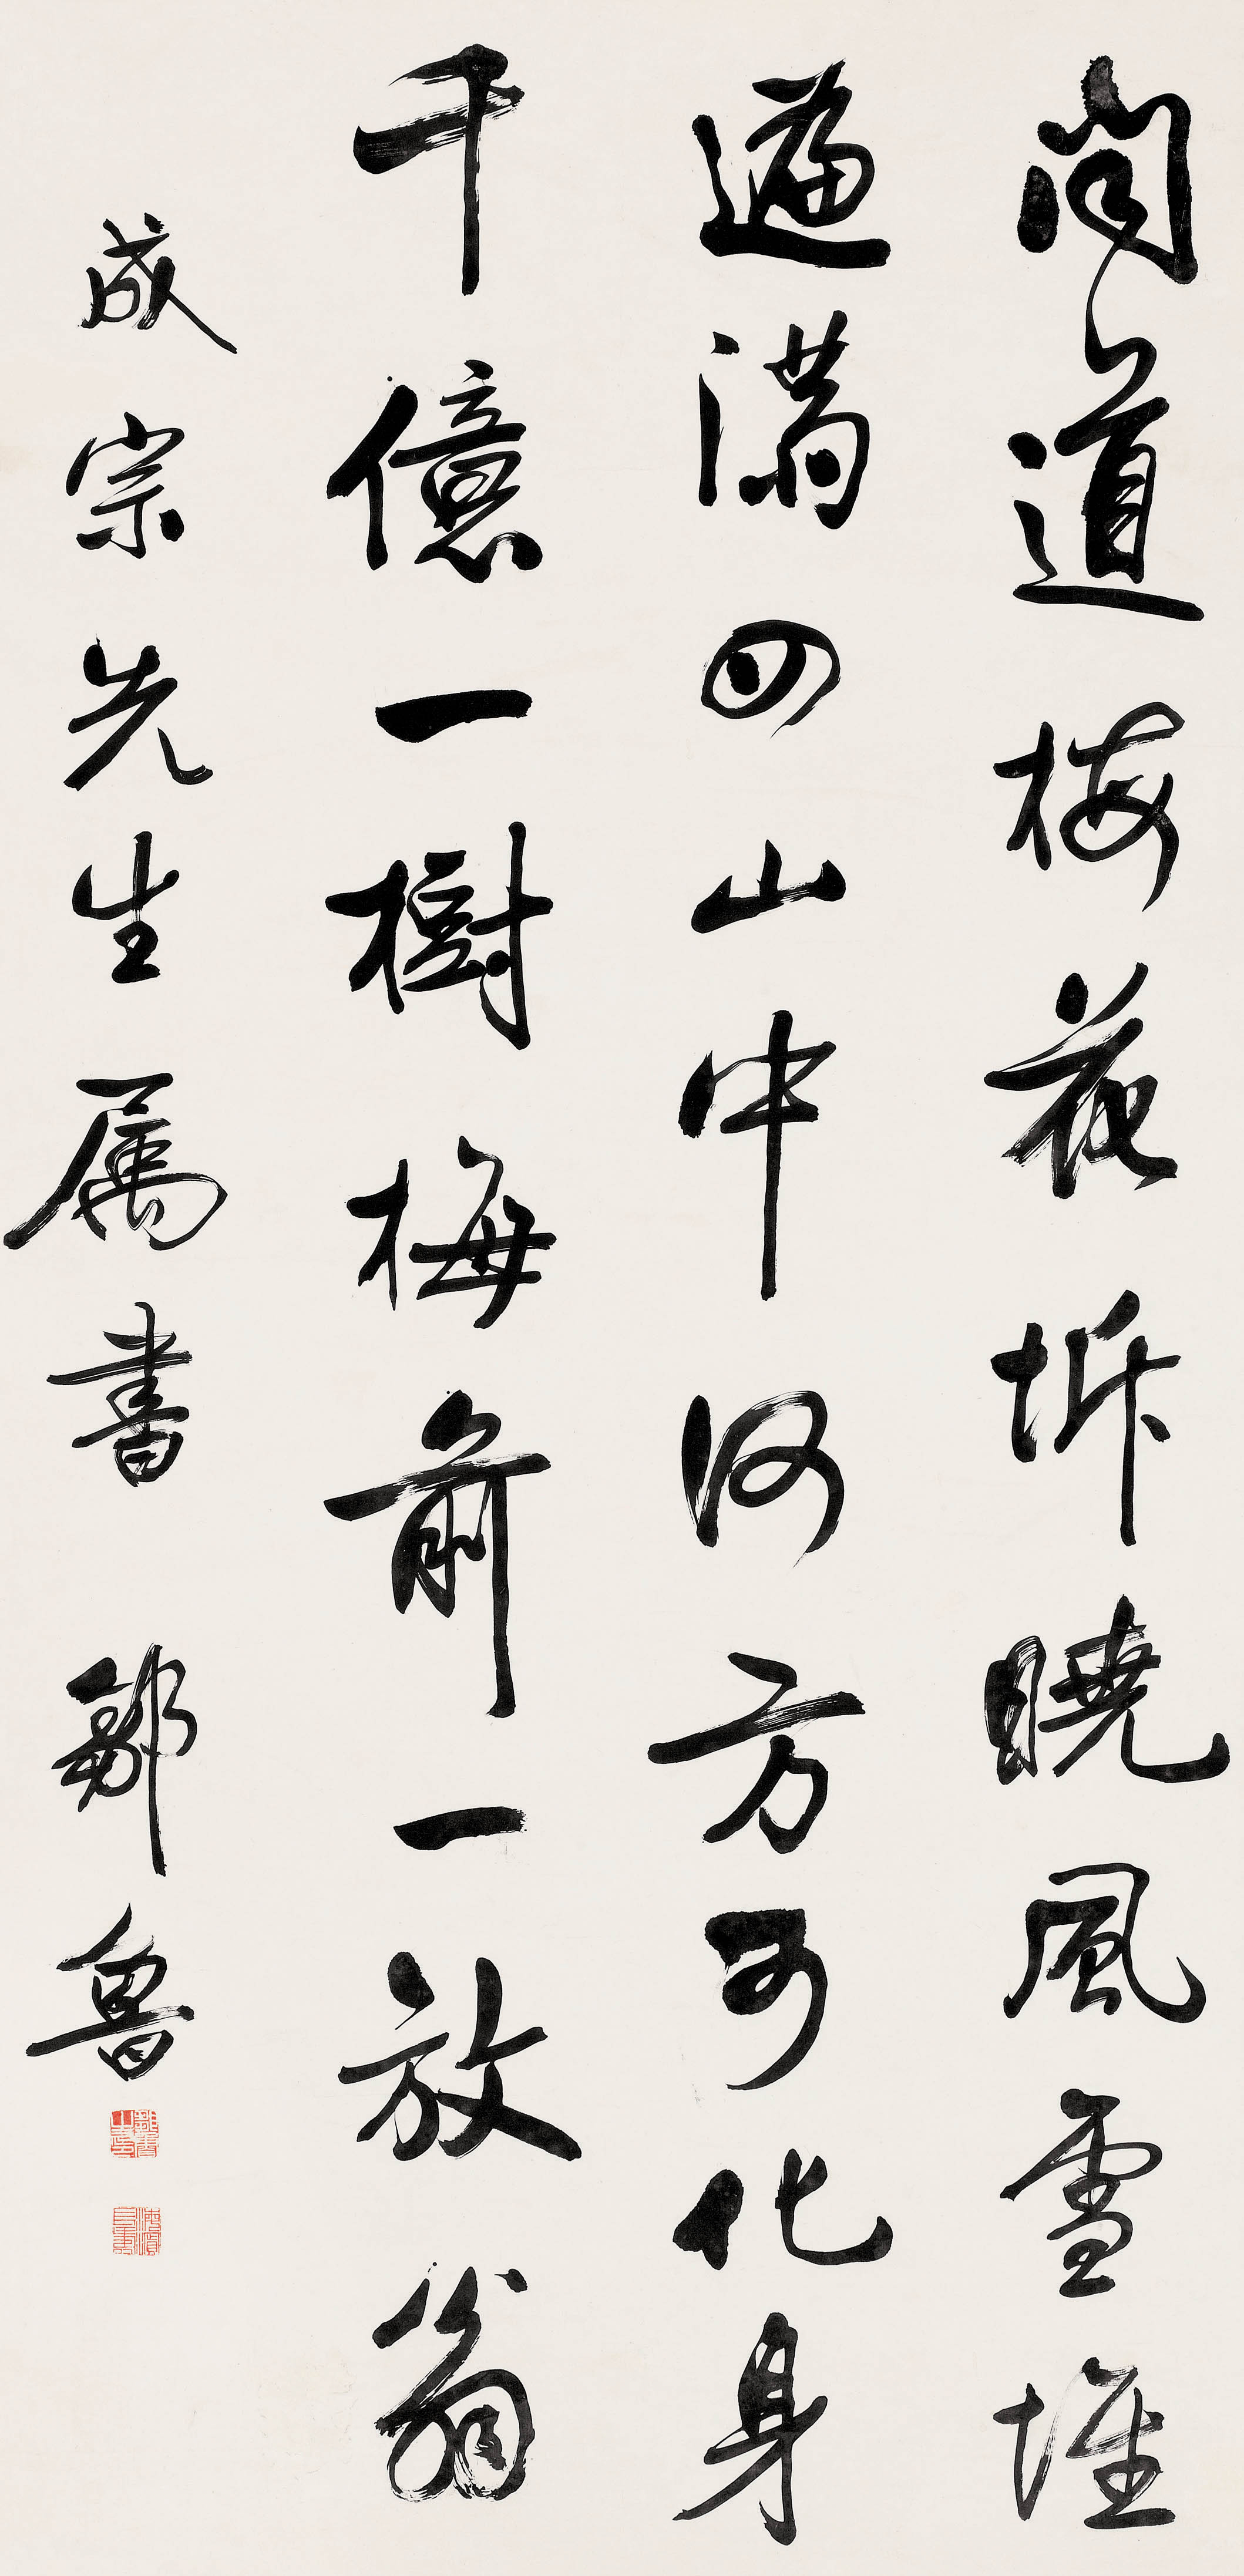 聞道梅花坼曉風雪堆
遍滿四山中何方可化身
千億一樹梅前一放翁
成宗先生属書 鄒魯
鄒魯之印